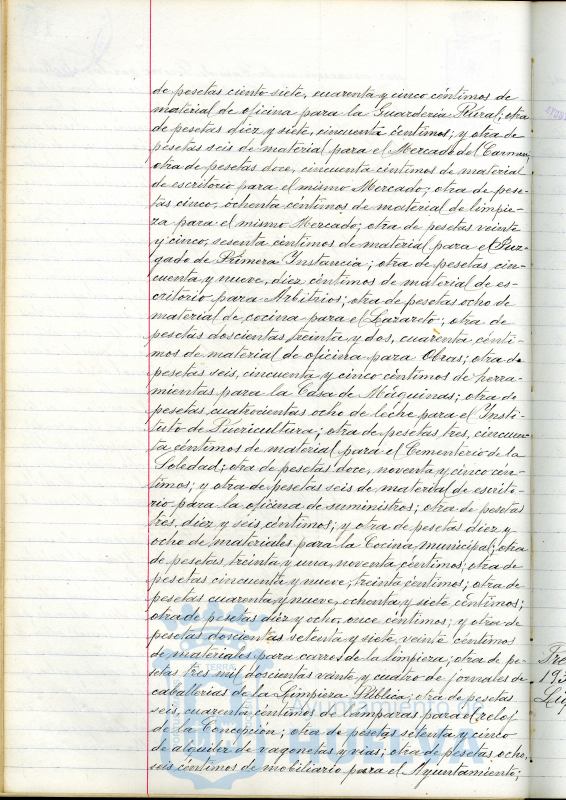 de pesetas ciento siete, cuarenta y cinco céntimos de
material de oficina para la Guarderia Rural; otra
de pesetas diez y siete, cincuenta céntimos; y otra de
pesetas seis de material para el Mercado del Carmen;
otra de pesetas doce, cincuenta céntimos de material
de escritorio para el mismo Mercado; otra de pese-
tas cinco, ochenta céntimos de material de limpie-
za para el mismo Mercado; otra de pesetas veinte
y cinco, sesenta céntimos de material para el Juz-
gado de Primera Instancia; otra de pesetas cin-
cuenta y nueve, diez céntimos de material de es-
critorio para Arbitrios; otra de pesetas ocho de
material de cocina para el Lazareto; otra de
pesetas doscientas treinta y dos, cuarenta cénti-
mos de material de oficina para Obras; otra de
pesetas seis, cincuenta y cinco céntimos de herra-
mientas para la Casa de Máquinas; otra de
pesetas cuatrocientas ocho de leche para el Insti-
tuto de Puericultura; otra de pesetas tres, cincuen-
ta céntimos de material para el Cementerio de la
Soledad; otra de pesetas doce, noventa y cinco cén-
timos; y otra de pesetas seis de material de escrito-
rio para la oficina de suministros; otra de pesetas
tres, diez y seis céntimos; y otra de pesetas diez y
ocho de materiales para la Cocina municipal; otra
de pesetas, treinta y una, noventa céntimos; otra de
pesetas cincuenta y nueve, treinta céntimos; otra de
pesetas cuarenta y nueve, ochenta y siete céntimos;
otra de pesetas diez y ocho, once céntimos; y otra de
pesetas doscientas setenta y siete, veinte céntimos
de materiales para carros de la limpieza; otra de pe-
setas tres mil doscientas veinte y cuatro de jornales de
caballerias de la Limpieza Pública; otra de pesetas
seis, cuarenta céntimos de lámparas para el reloj
de la Concepción; otra de pesetas setenta y cinco
de alquiler de vagonetas y vias; otra de pesetas ocho,
seis céntimos de mobiliario para el Ayuntamiento;
TERRA
Ayuntamiento de
HUELVA
193